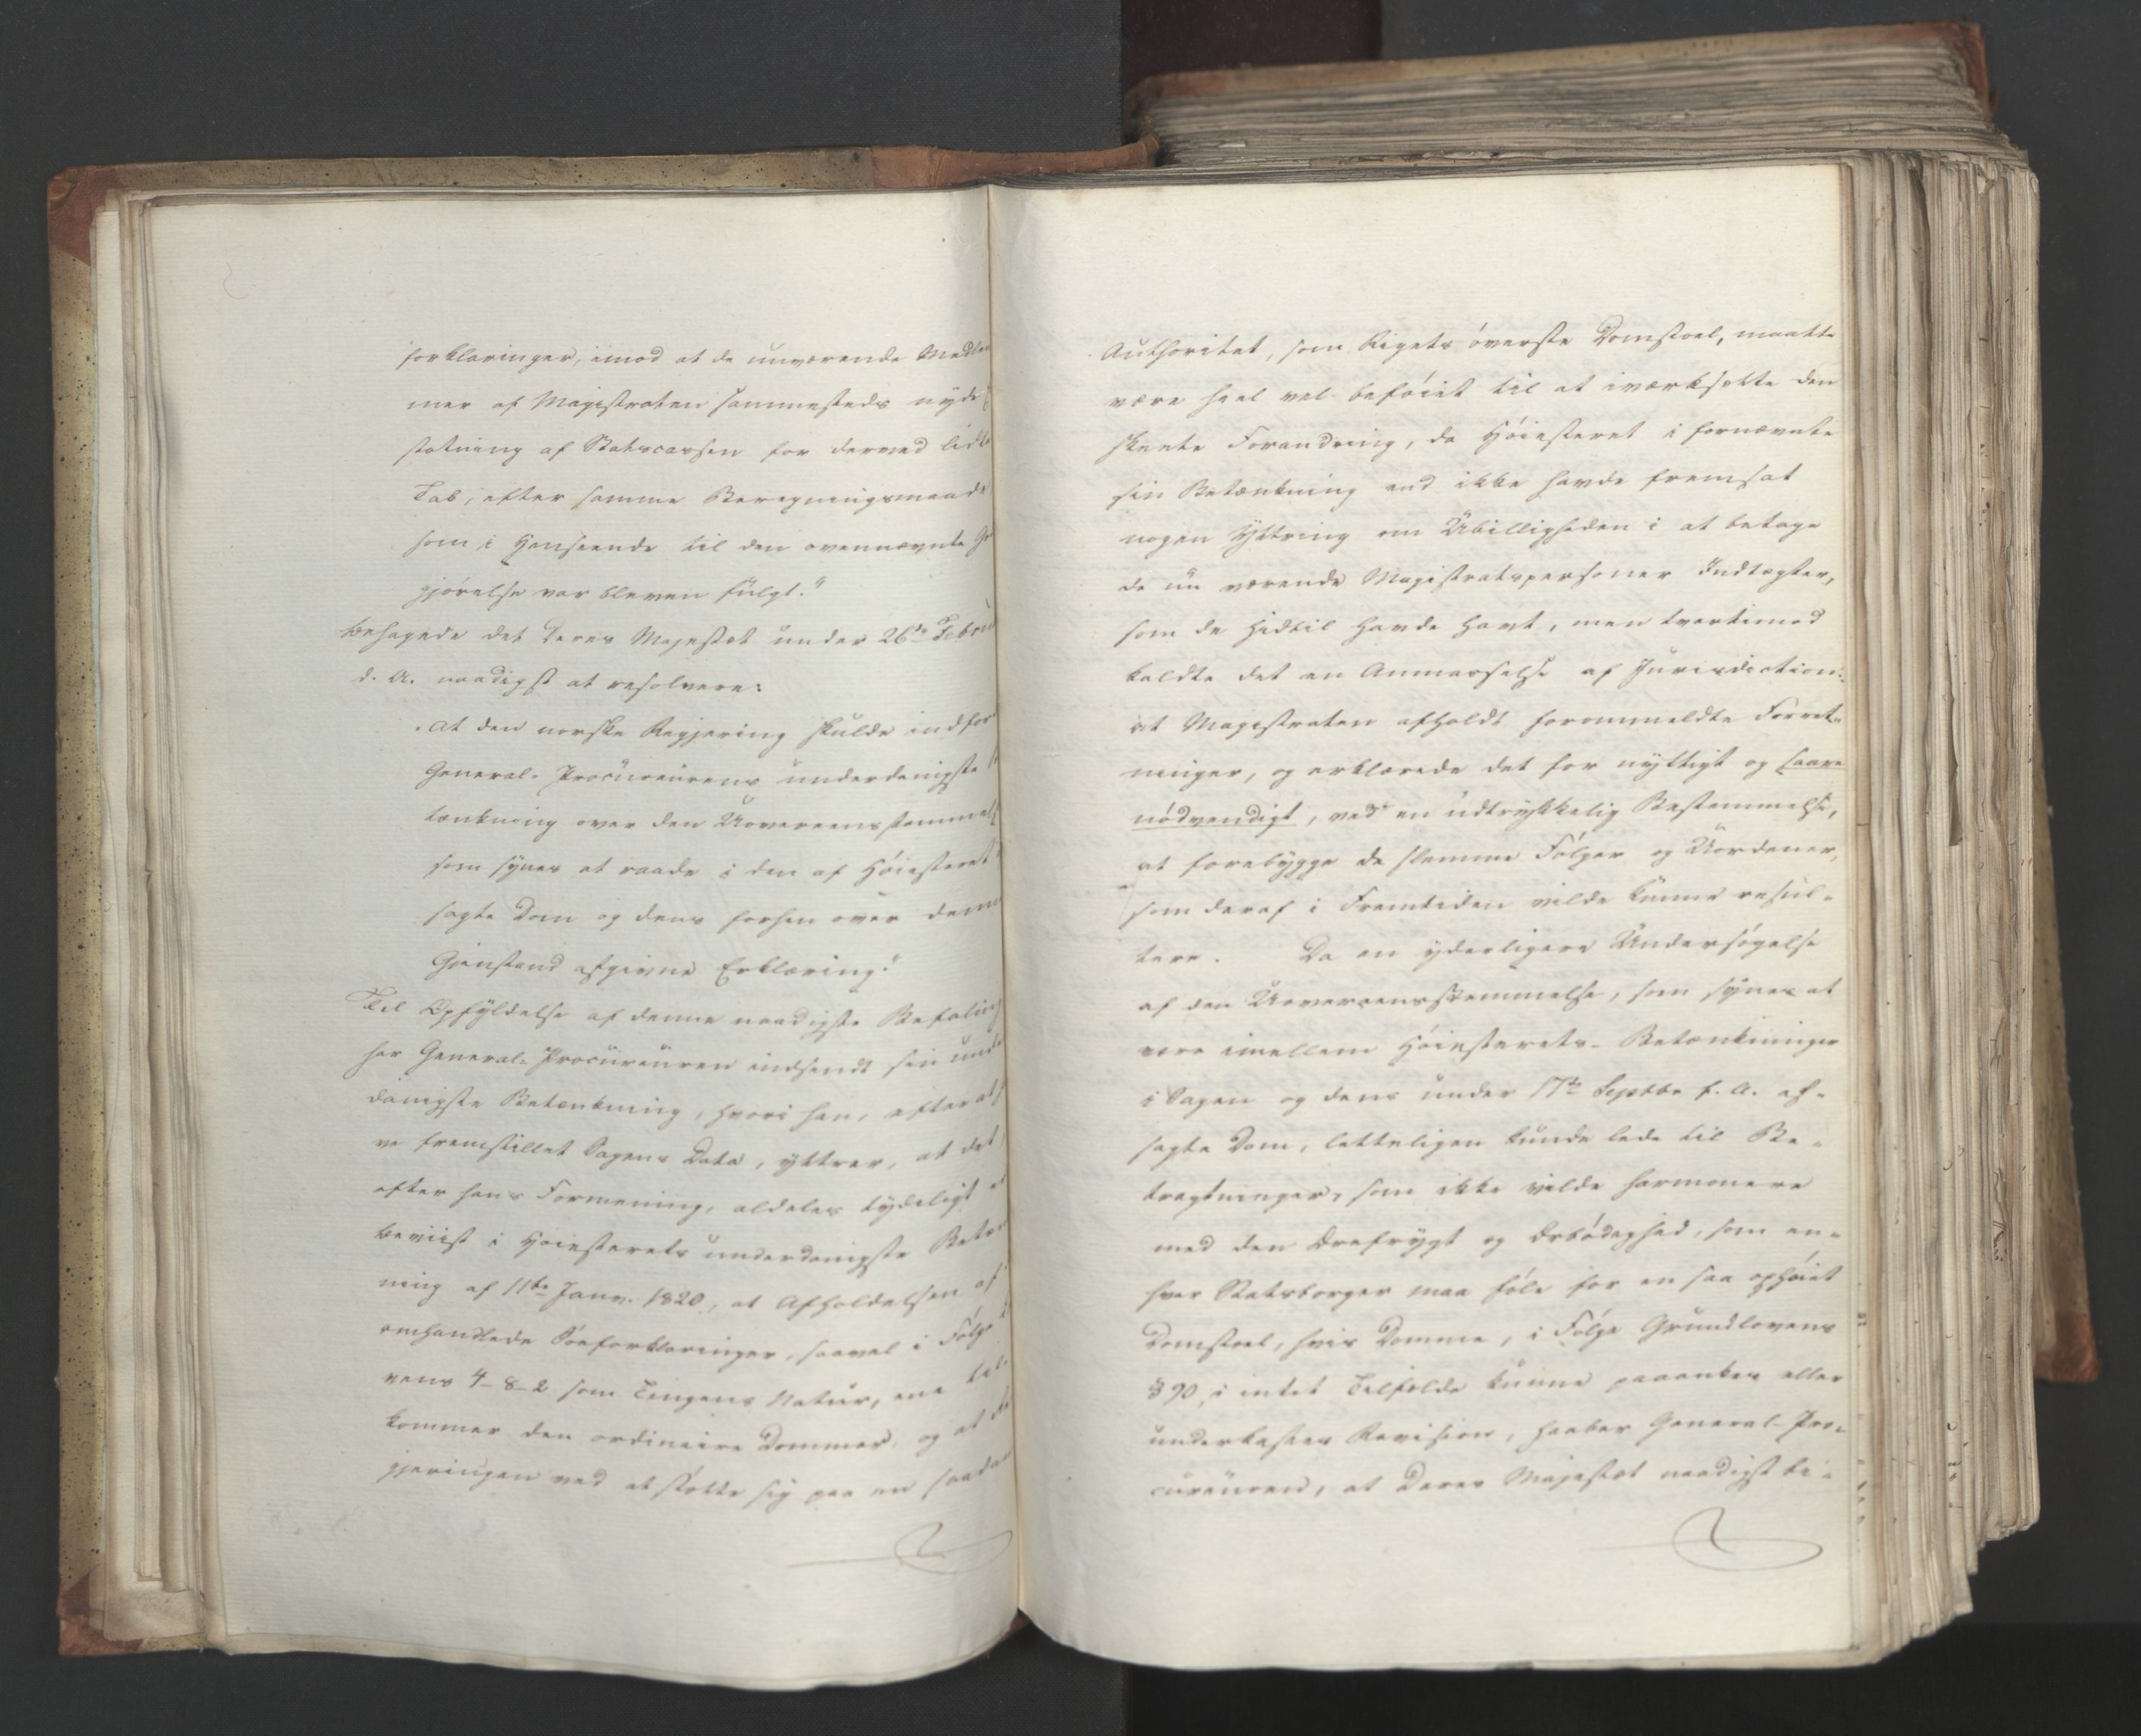 forklaringer, imod at de nuværende Medlem
mer af Magistraten sammesteds nyde
statning af Statscassen for derved lidt
Tab, efter samme Beregningsmaade
som i Henseende til den ovennævnte
gjørelse var bleven fulgt."
behagede det Deres Majestæt under 26de Febru
d. A. naadigst at resolvere:
"At den norske Regjering skulde indfor
General-Procureurens underdanigste
tænkning over den Uovereensstemmels
som synes at raade i den af Høiesteret
sagte Dom og dens forhen over denne
Gjenstand afgivne Erklæring."
Til Opfyldelse af denne naadigste Befaling
har General-Procureuren indsendt sin unde
danigste Betænkning, hvori han, efter at
ve fremstillet Sagens Data, yttrer, at det
efter hans Formening, aldeles tydeligt er
beviist i Høiesterets underdanigste Betæn
ning af 11te Janv. 1820, at Afholdelsen af
omhandlede Søeforklaringer, saavel i Følge
vens 4-8-2 som Tingens Natur, ene til-
kommer den ordinaire Dommer, og at Re
gjeringen ved at støtte sig paa en saadan
Authoritet, som Rigets øverste Domstoel, maatte
være heel vel beføiet til at iværksætte den
skeete Forandring, da Høiesteret i fornævnte
sin Betænkning end ikke havde fremsat
nogen Yttring om Ubilligheden i at betage
de nu værende Magistratspersoner Indtægter,
som de hidtil havde havt, men tvertimod
kaldte det en Anmasselse af Jurisdiction:
at Magistraten afholdt formeldte Forret-
ninger, og erklærede det for nyttigt og saare
nødvendigt, ved en udtrykkelig Bestemmelse,
at forebygge de slemme Følger og Uordener,
som deraf i Fremtiden vilde kunne resul-
tere. Da en yderligere Undersøgelse
af den Uovereensstemmelse, som synes at
være imellem Høiesterets Betænkninger
i Sagen og dens under 17de Septbr f. A. af-
sagte Dom, letteligen kunde lede til Be-
tragtninger, som ikke vilde harmonere
med den Ærefrygt og Ærbødighed, som en-
hver Statsborger maa føle for en saa ophøiet
Domstoel, hvis Domme, i Følge Grundlovens
§ 90, i intet Tilfælde kunne paaankes eller
underkastes Revision, haaber General-Pro-
cureuren, at Deres Majestæt naadigst bi-